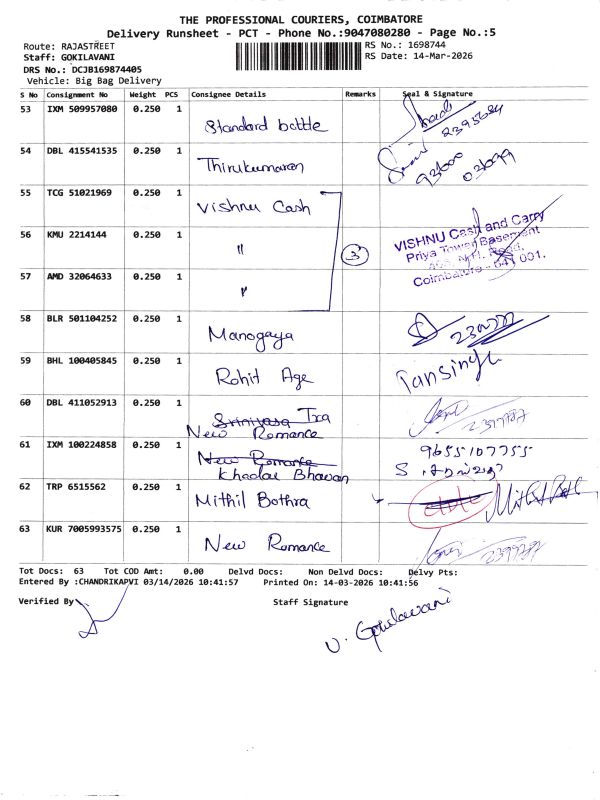 THE PROFESSIONAL COURIERS, COIMBATORE
Delivery Runsheet - PCT - Phone No.:9047080280 - Page No.:5
Route: RAJASTREET
RS No.: 1698744
Staff: GOKILAVANI
RS Date: 14-Mar-2026
DRS No.: DCJB169874405
Vehicle: Big Bag Delivery
S No Consignment No Weight PCS Consignee Details Remarks Seal & Signature
53 IXM 509957080 0.250 1 Standard bottle
54 DBL 415541535 0.250 1 Thirukumaran
55 TCG 51021969 0.250 1 Vishnu Cash
56 KMU 2214144 0.250 1 " 3
VISHNU Cash and Carry
Priya Tower Basement
Coimbatore - 641 001.
57 AMD 32064633 0.250 1 "
58 BLR 501104252 0.250 1 Manogaya
59 BHL 100405845 0.250 1 Rohit Age Tansingh
60 DBL 411052913 0.250 1 Srinivasa Tra
New Romance
61 IXM 100224858 0.250 1 New Romance 9655107755
Khadai Bhavan
62 TRP 6515562 0.250 1 Mithil Bothra
63 KUR 7005993575 0.250 1 New Romance
Tot Docs: 63 Tot COD Amt: 0.00 Delvd Docs: Non Delvd Docs: Delvy Pts:
Entered By :CHANDRIKAPVI 03/14/2026 10:41:57 Printed On: 14-03-2026 10:41:56
Verified By Staff Signature
V. Gokilavani